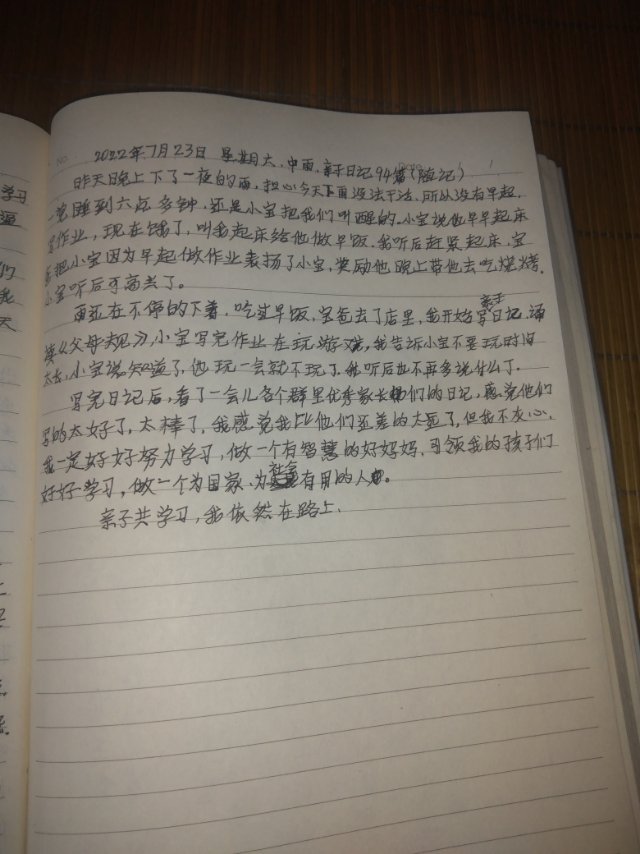 学习
天
NO
2022年7月23日 星期六.中雨.亲子日记94篇(随记)
昨天晚上下了一夜的雨,担心今天下雨没法干活.所以没有早起,
一觉睡到六点多钟.还是小宝把我们叫醒的.小宝说他早早起床
写作业,现在饿了,叫我起床给他做早饭.我听后赶紧起床.宝
爸把小宝因为早起做作业表扬了小宝,奖励他晚上带他去吃烧烤.
小宝听后可高兴了.
雨还在不停的下着,吃过早饭,宝爸去了店里,我开始写亲子日记.诵
读《父母规》,小宝写完作业在玩游戏,我告诉小宝不要玩时间
太长,小宝说知道了,他玩一会就不玩了.我听后也不再多说什么了.
写完日记后,看了一会儿各个群里优秀家长们的日记,感觉他们
写的太好了,太棒了,我感觉我比他们还差的太远了,但我不灰心,
我一定好好努力学习,做一个有智慧的好妈妈,引领我的孩子们
好好学习,做一个为国家.为社会有用的人.
亲子共学习,我依然在路上.